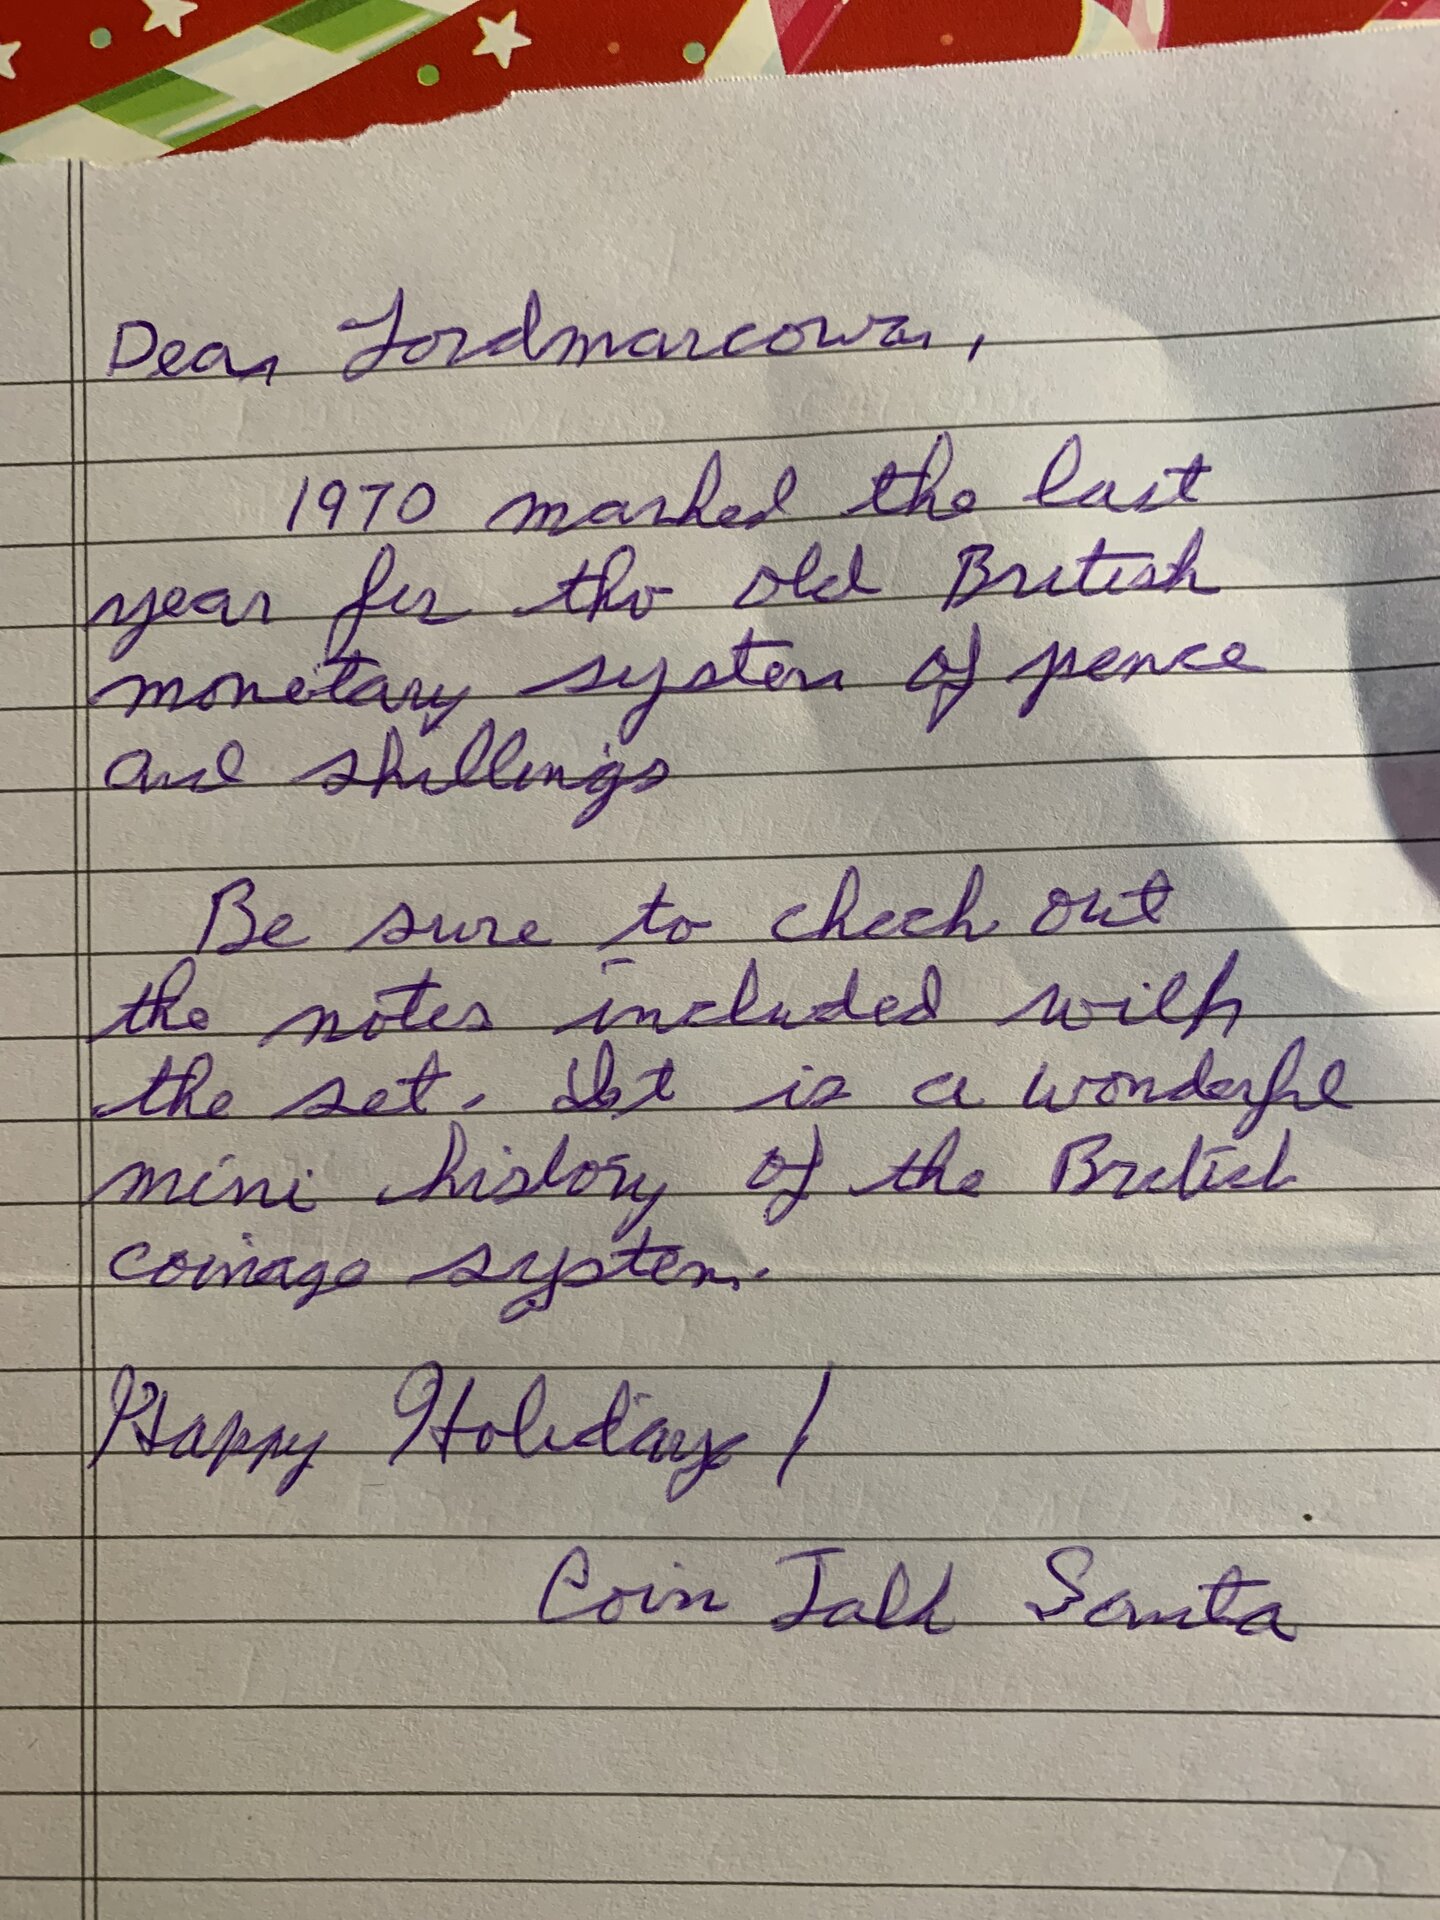 Dear Lordmarcovan,
1970 marked the last
year for the old British
monetary system of pence
and shillings
Be sure to check out
the notes included with
the set. It is a wonderful
mini history of the British
coinage system.
Happy Holidays!
Coin Talk Santa